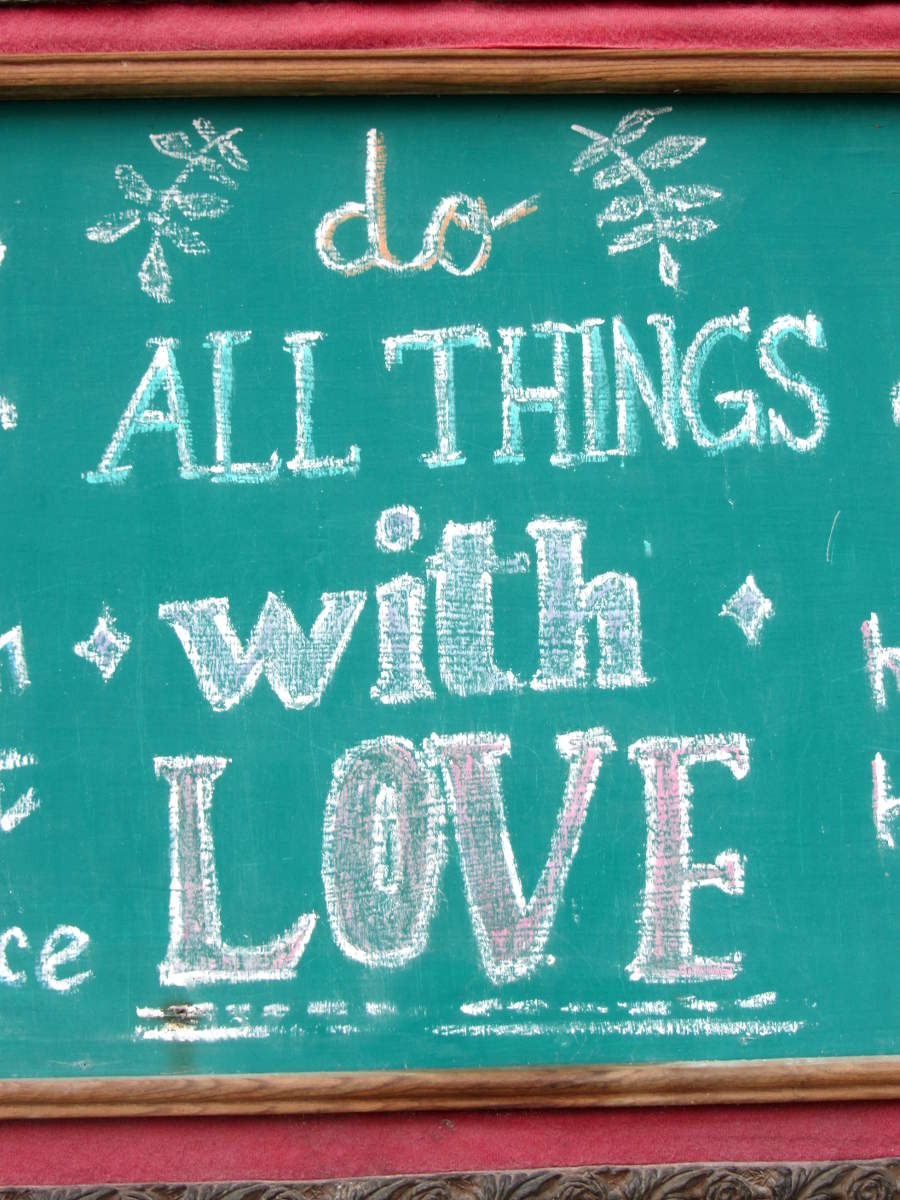 do
ALL THINGS
with
LOVE
ce